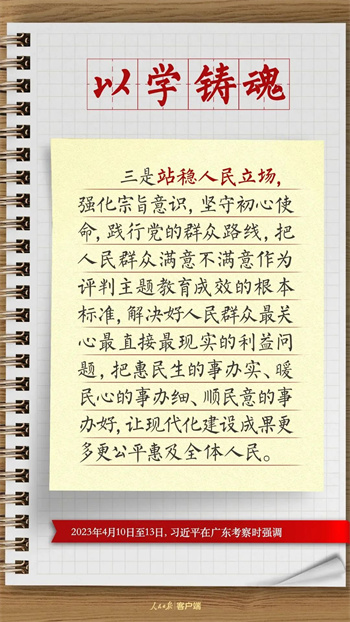 以学铸魂
三是站稳人民立场，
强化宗旨意识，坚守初心使
命，践行党的群众路线，把
人民群众满意不满意作为
评判主题教育成效的根本
标准，解决好人民群众最关
心最直接最现实的利益问
题，把惠民生的事办实、暖
民心的事办细、顺民意的事
办好，让现代化建设成果更
多更公平惠及全体人民。
2023年4月10日至13日，习近平在广东考察时强调
人民日报 客户端